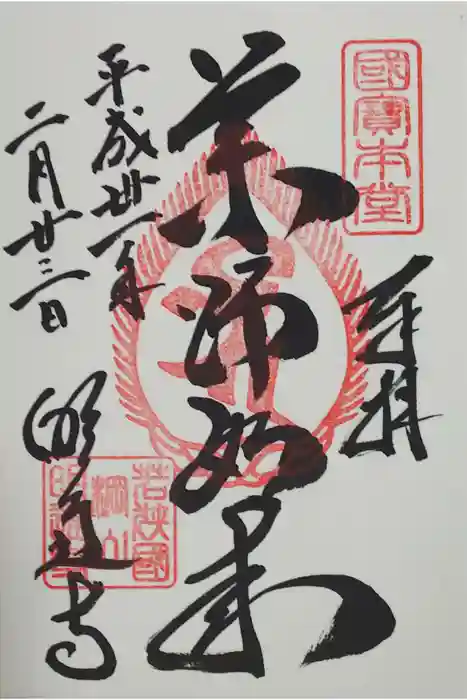 國寳本堂
奉拝
薬師如来
平成卅一年
二月廿三日
若狭國
棡山
明通寺
明通寺